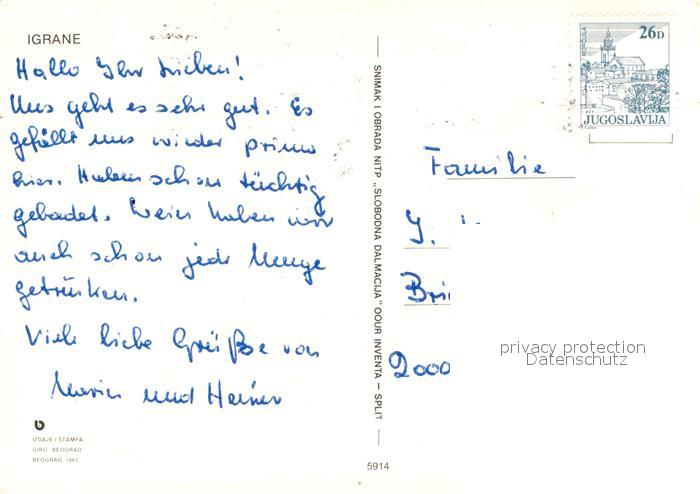 IGRANE
Hallo Ihr Lieben!
Uns geht es sehr gut. Es
gefällt uns wieder prima
hier. Haben schon tüchtig
gebadet. Wein haben wir
auch schon jede Menge
getrunken.
Viele liebe Grüße von
und Heiner
IZDAJE I ŠTAMPA
GIRO "BEOGRAD"
BEOGRAD, 1983.
SNIMAK I OBRADA NITP „SLOBODNA DALMACIJA” OOUR INVENTA — SPLIT
5914
KORČULA
26D
PTT
JUGOSLAVIJA
Familie
J.
Bri
2000
privacy protection
Datenschutz